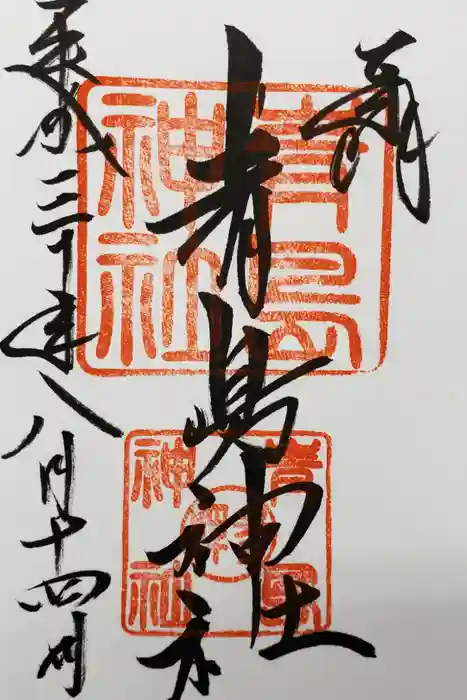 奉拝
青嶋神社
平成三十年八月十四日
青島
神社
青島
神社